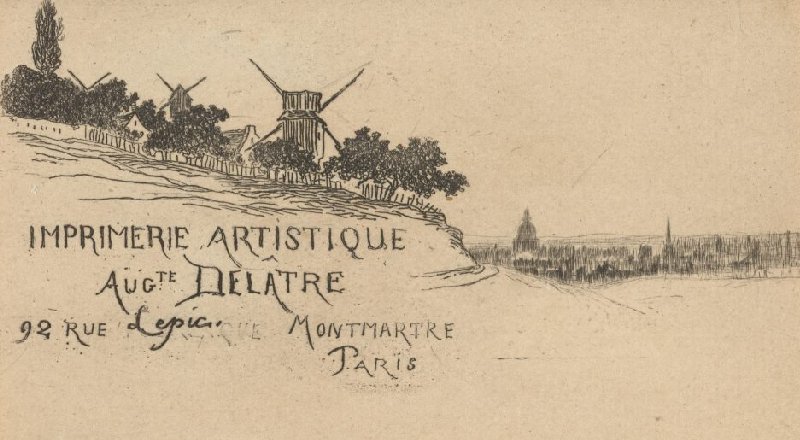 IMPRIMERIE ARTISTIQUE
AUGTE DELÂTRE
92 RUE Lepic. MONTMARTRE
PARIS